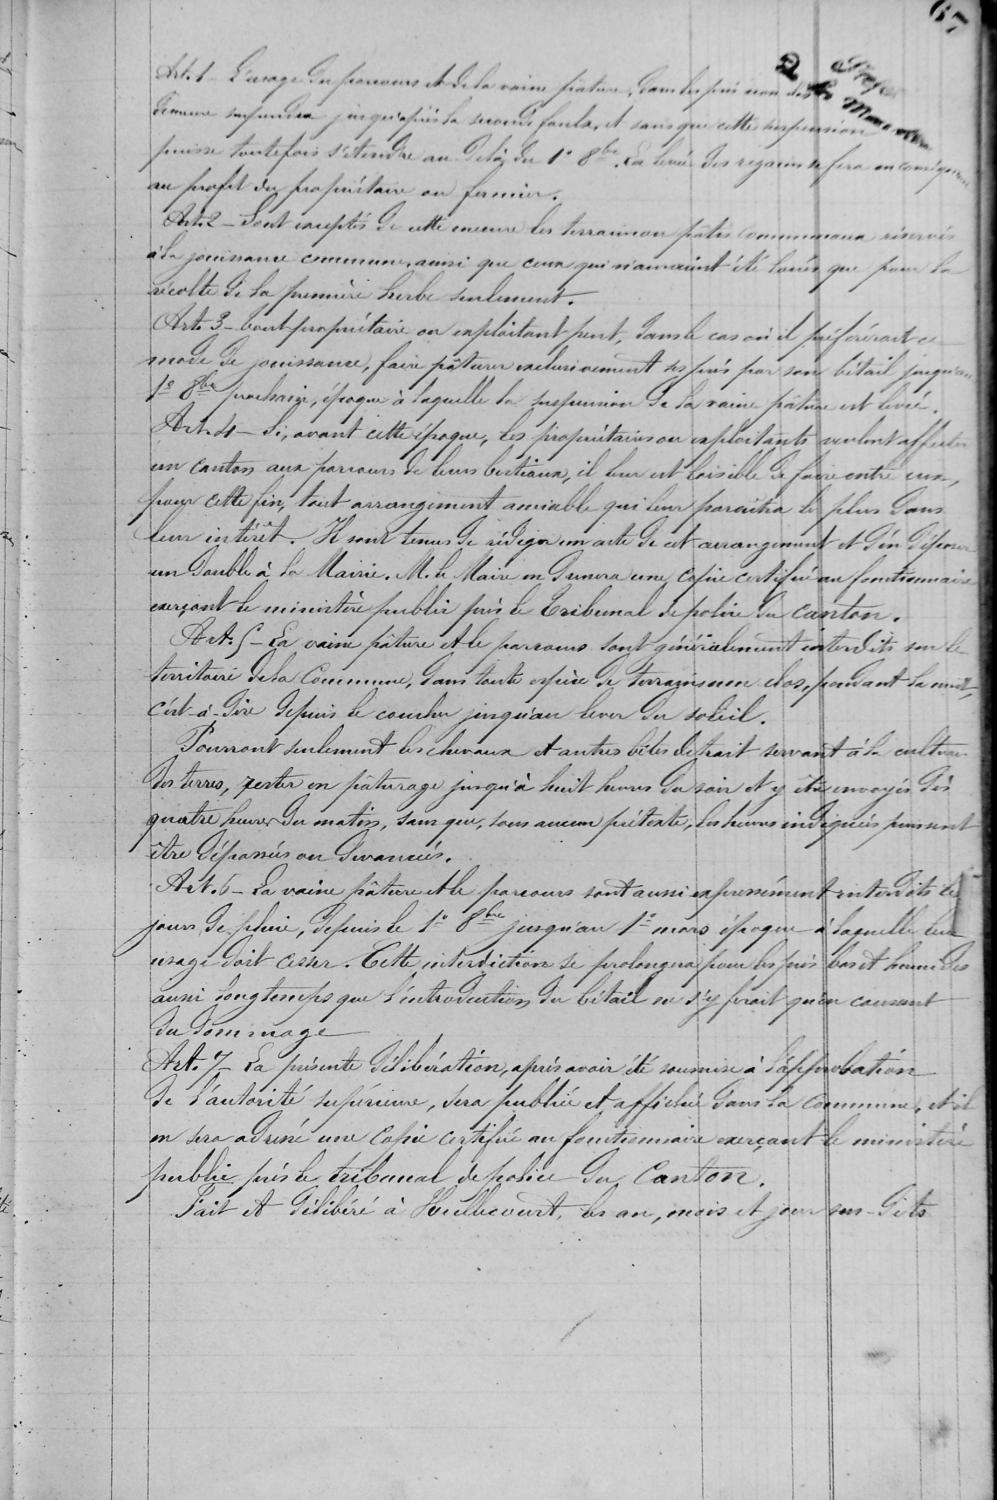 67
Art. 1 – L'usage du parcours et de la vaine pâture, dans les prés non clos
demeure suspendu jusqu'après la seconde faulx, et sans que cette suspension
puisse toutefois s'étendre au delà du 1er 8bre. La levée des regains se fera en conséquence
au profit du propriétaire ou fermier.
Art. 2 – Sont exceptés de cette mesure les terrains ou pâtis communaux réservés
à la jouissance commune, ainsi que ceux qui n'auraient été loués que pour la
récolte de la première herbe seulement.
Art. 3 – tout propriétaire ou exploitant peut, dans le cas où il préférerait ce
mode de jouissance, faire pâturer exclusivement ses prés par son bétail jusqu'au
1er 8bre prochain, époque à laquelle la suspension de la vaine pâture est levée.
Art. 4 – Si, avant cette époque, les propriétaires ou exploitants veulent affecter
un canton aux parcours de leurs bestiaux, il leur est loisible de faire entre eux,
pour cette fin, tout arrangement amiable qui leur paraîtra le plus dans
leur intérêt. Il sont tenus de rédiger un acte de cet arrangement et d'en déposer
un double à la Mairie. M. le Maire en donnera une copie certifiée au fonctionnaire
exerçant le ministère public près le Tribunal de police du canton.
Art. 5 – La vaine pâture et le parcours sont généralement interdits sur le
territoire de la Commune, dans toute espèce de terrains non clos, pendant la nuit,
c'est-à-dire depuis le coucher jusqu'au lever du soleil.
Pourront seulement les chevaux et autres bêtes de trait servant à la culture
des terres, rester en pâturage jusqu'à huit heures du soir et y être envoyés dès
quatre heures du matin, sans que, sous aucun prétexte, les heures indiquées puissent
être dépassées ou devancées.
Art. 6 – La vaine pâture et le parcours sont aussi expressément interdits les
jours de pluie, depuis le 1er 8bre jusqu'au 1er mars époque à laquelle leur
usage doit cesser. Cette interdiction se prolongera pour les prés bas et humides
aussi longtemps que l'introduction du bétail ne s'y ferait qu'en causant
du dommage
Art. 7 – La présente délibération, après avoir été soumise à l'approbation
de l'autorité supérieure, sera publiée et affichée dans la Commune, et il
en sera adressé une copie certifiée au fonctionnaire exerçant le ministère
public près le tribunal de police du canton.
Fait et délibéré à Huilliécourt, les an, mois et jour sus-dits